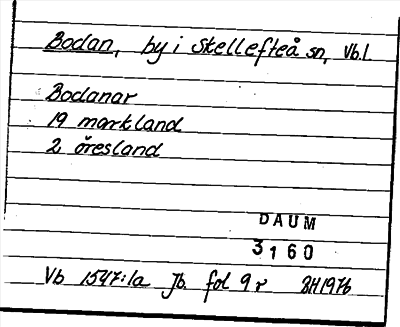 Bodan, by i Skellefteå sn, Vb.l.
Bodanar
19 markland
2 öresland
DAUM
3160
Vb 1547:1a Jb. fol 9 r BH1976